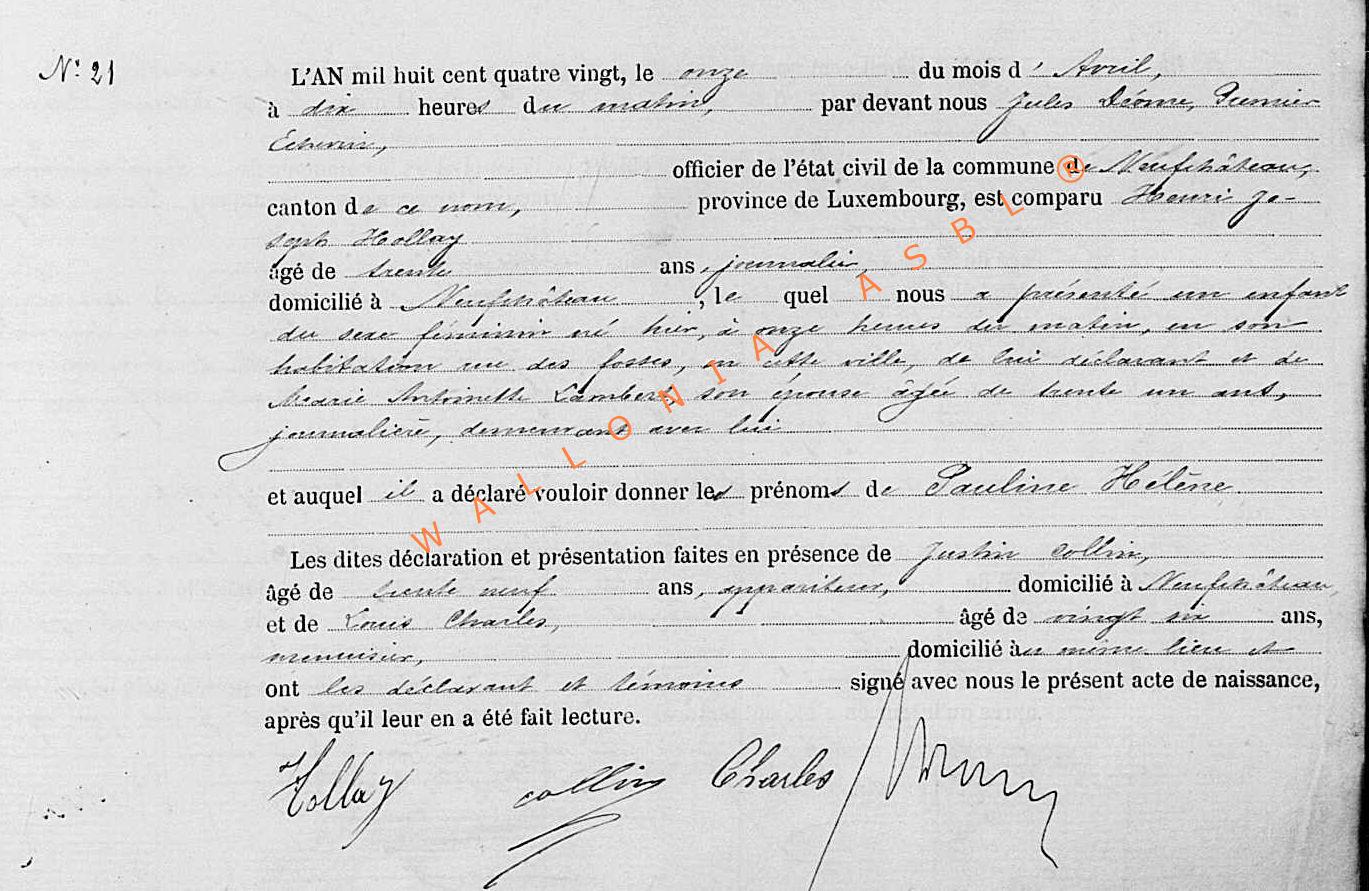 N° 21
L'AN mil huit cent quatre vingt, le onze du mois d' Avril,
à dix heures du matin, par devant nous Jules Déome, Premier
Echevin,
officier de l'état civil de la commune de Neufchâteau,
canton de ce nom, province de Luxembourg, est comparu Henri Jo-
seph Hollay
âgé de trente ans, journalier,
domicilié à Neufchâteau, le quel nous a présenté un enfant
du sexe féminin né hier, à onze heures du matin, en son
habitation rue des fosses, en cette ville, de lui déclarant et de
Marie Antoinette Lambert, son épouse âgée de trente un ans,
journalière, demeurant avec lui
et auquel il a déclaré vouloir donner les prénoms de Pauline Hélène
Les dites déclaration et présentation faites en présence de Justin Collin,
âgé de trente neuf ans, appariteur, domicilié à Neufchâteau,
et de Louis Charles, âgé de vingt six ans,
menuisier, domicilié au même lieu et
ont les déclarant et témoins signé avec nous le présent acte de naissance,
après qu'il leur en a été fait lecture.
Hollay collin Charles
WALLONIA ASBL ®